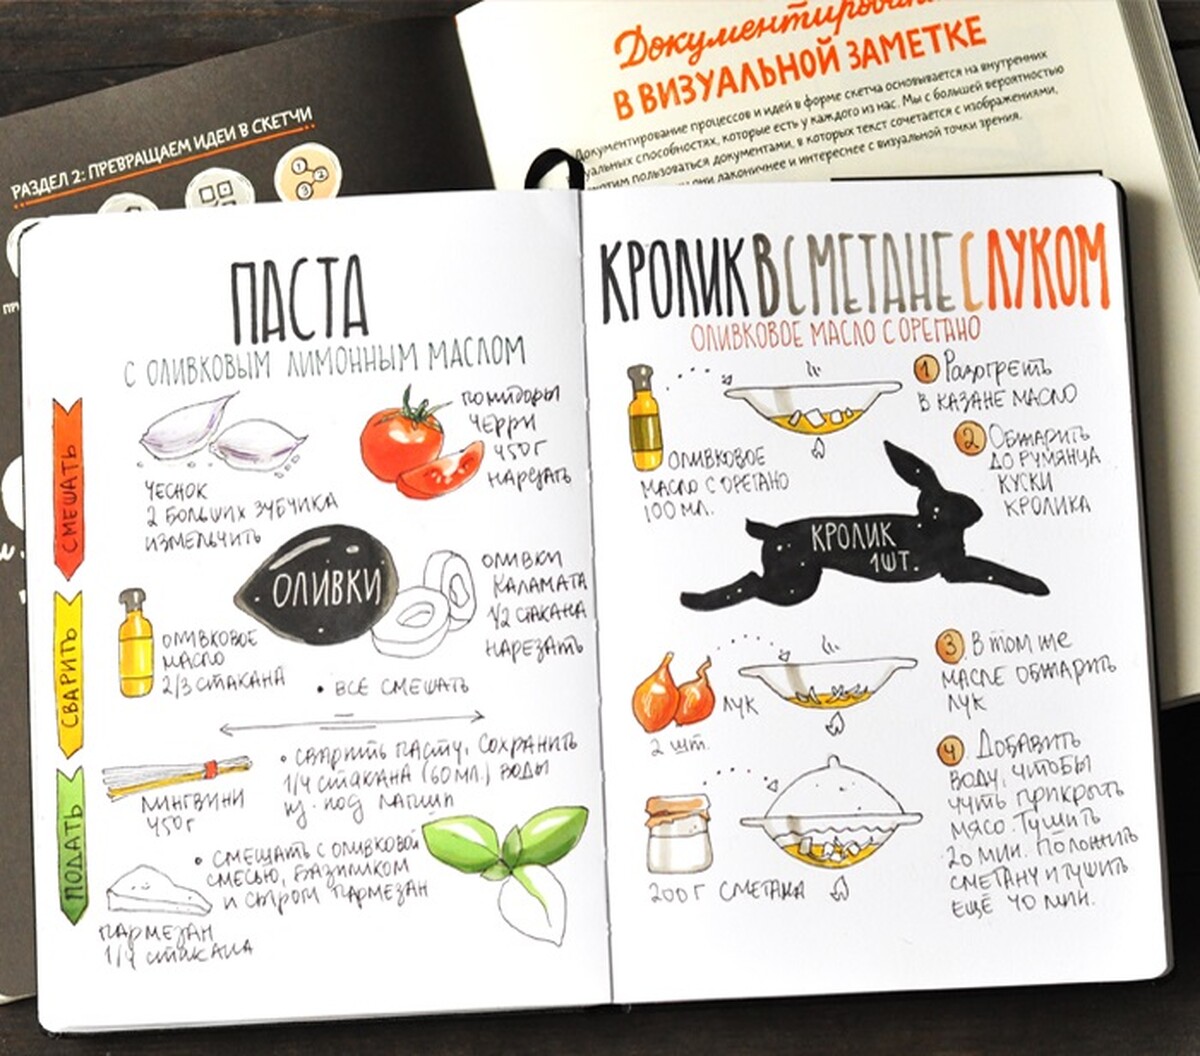 Документирование
В ВИЗУАЛЬНОЙ ЗАМЕТКЕ
Документирование процессов и идей в форме скетча основывается на внутренних
способностях, которые есть у каждого из нас. Мы с большей вероятностью
пользоваться документами, в которых текст сочетается с изображениями,
они лаконичнее и интереснее с визуальной точки зрения.
РАЗДЕЛ 2: ПРЕВРАЩАЕМ ИДЕИ В СКЕТЧИ
1
2
3
ПАСТА
С ОЛИВКОВЫМ ЛИМОННЫМ МАСЛОМ
СМЕШАТЬ
ЧЕСНОК
2 БОЛЬШИХ ЗУБЧИКА
ИЗМЕЛЬЧИТЬ
ПОМИДОРЫ
ЧЕРРИ
450Г
НАРЕЗАТЬ
ОЛИВКИ
ОЛИВКИ
КАЛАМАТА
1/2 СТАКАНА
НАРЕЗАТЬ
ОЛИВКОВОЕ
МАСЛО
2/3 СТАКАНА
• ВСЕ СМЕШАТЬ
СВАРИТЬ
ЛИНГВИНИ
450г
• СВАРИТЬ ПАСТУ, СОХРАНИТЬ
1/4 СТАКАНА (60МЛ.) ВОДЫ
ИЗ-ПОД ЛАПШИ
ПОДАТЬ
• СМЕШАТЬ С ОЛИВКОВОЙ
СМЕСЬЮ, БАЗИЛИКОМ
И СЫРОМ ПАРМЕЗАН
ПАРМЕЗАН
1/4 СТАКАНА
КРОЛИК В СМЕТАНЕ С ЛУКОМ
ОЛИВКОВОЕ МАСЛО С ОРЕГАНО
ОЛИВКОВОЕ
МАСЛО С ОРЕГАНО
100 МЛ.
1 Разогреть
В КАЗАНЕ МАСЛО
2 ОБЖАРИТЬ
ДО РУМЯНЦА
КУСКИ
КРОЛИКА
КРОЛИК
1ШТ.
ЛУК
2 шт.
3 В ТОМ ЖЕ
МАСЛЕ ОБЖАРИТЬ
ЛУК
200 Г СМЕТАНА
4 ДОБАВИТЬ
ВОДУ, ЧТОБЫ
ЧУТЬ ПРИКРЫТЬ
МЯСО. ТУШИТЬ
20 МИН. ПОЛОЖИТЬ
СМЕТАНУ И ТУШИТЬ
ЕЩЁ 40 МИН.